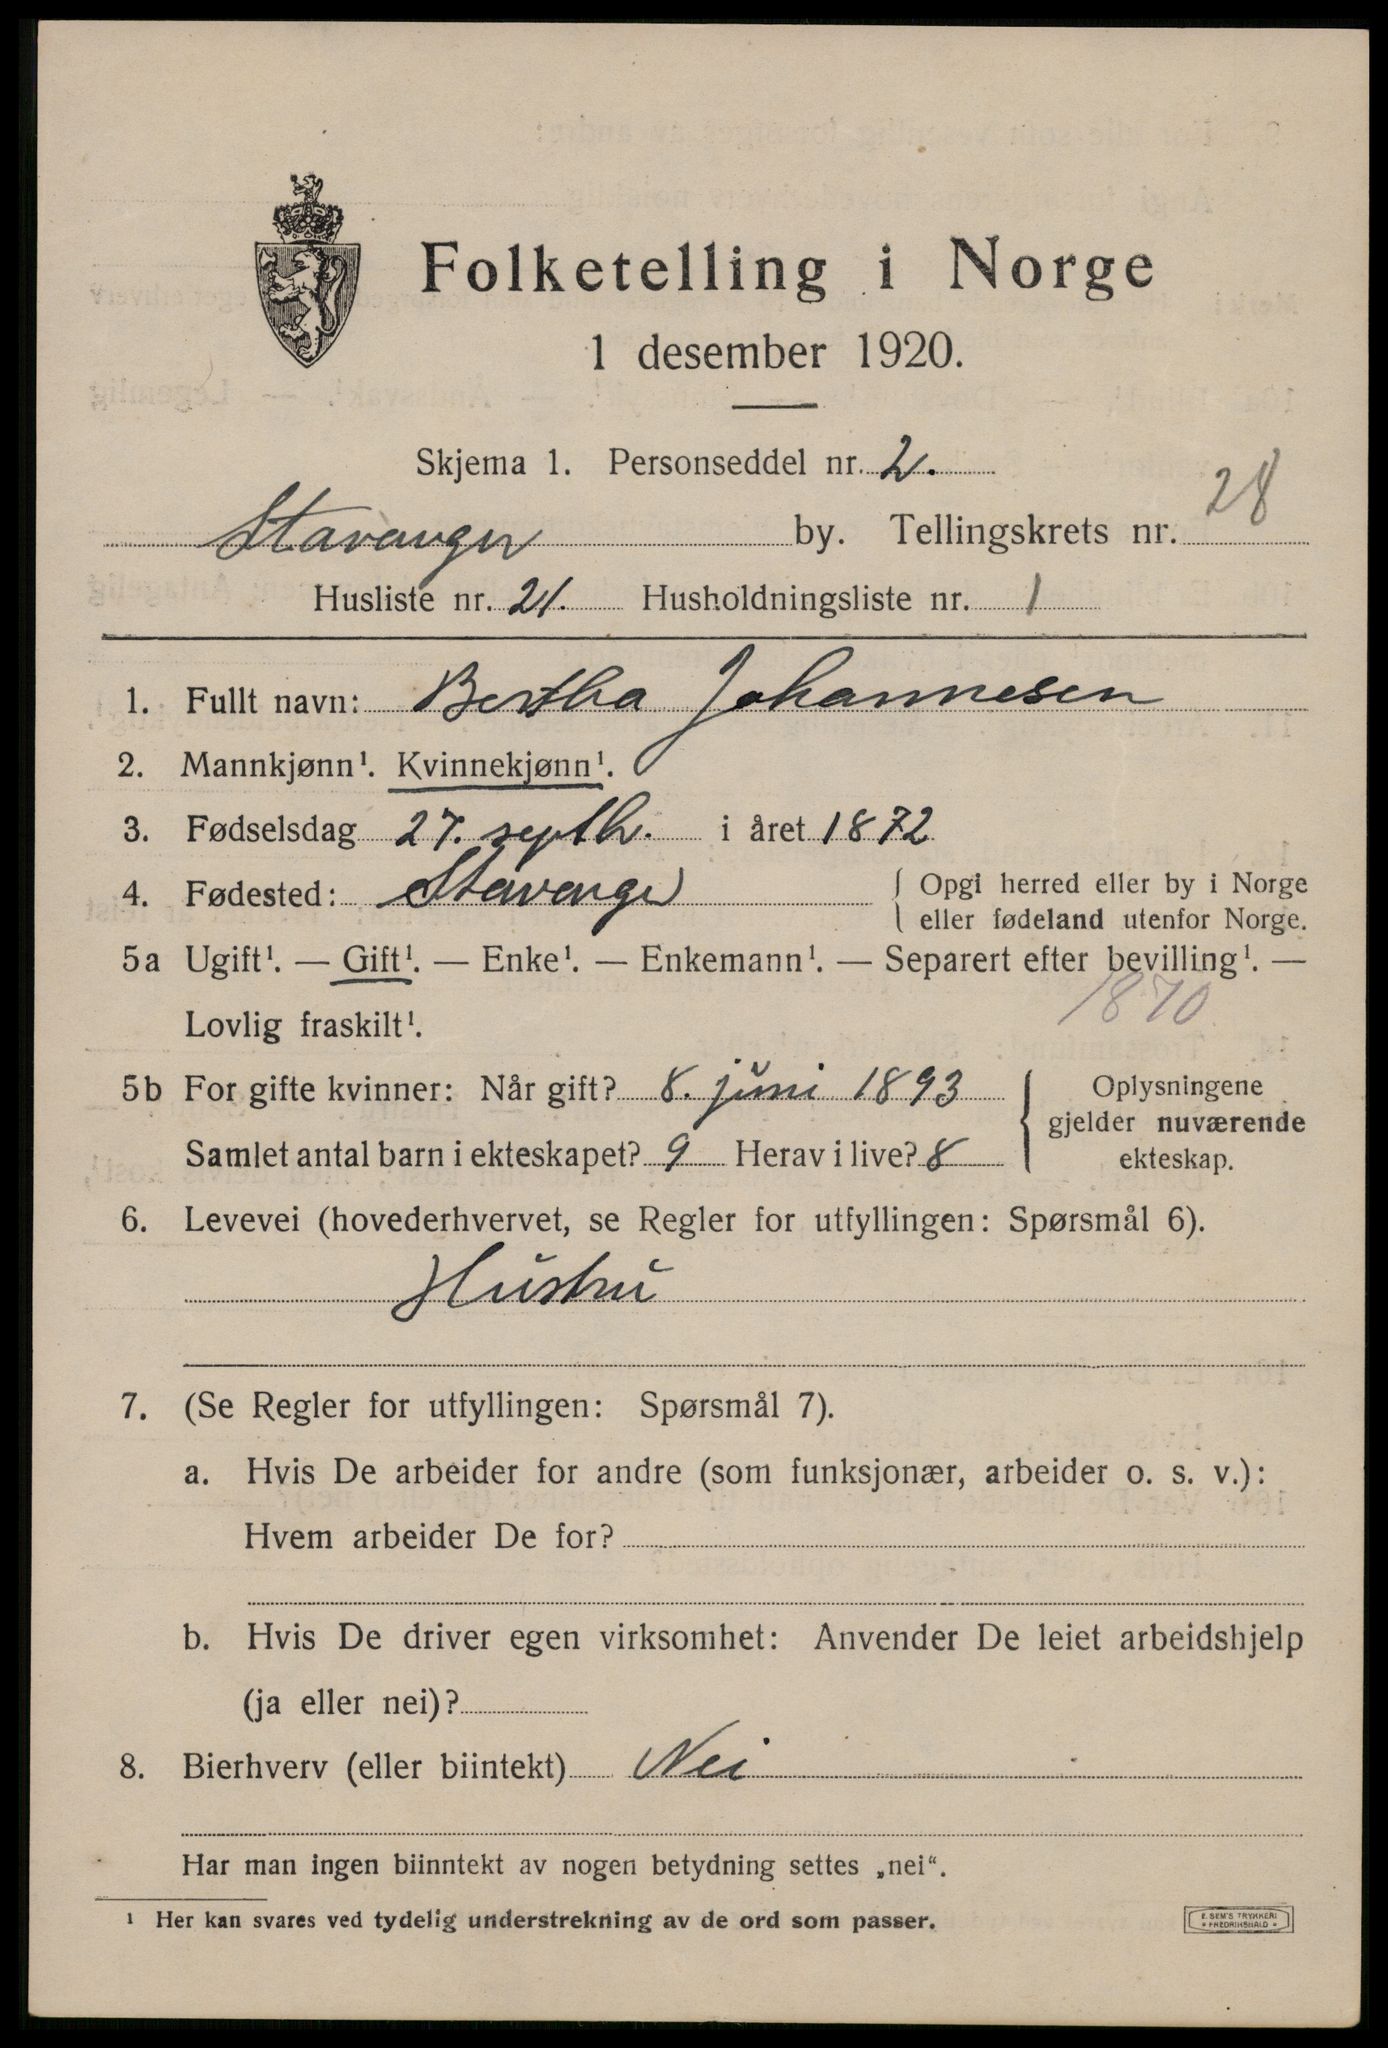 Folketelling i Norge
1 desember 1920.
Skjema 1. Personseddel nr. 2.
Stavanger by. Tellingskrets nr. 28
Husliste nr. 21. Husholdningsliste nr. 1
1. Fullt navn: Bertha Johannesen
2. Mannkjønn¹. Kvinnekjønn¹.
3. Fødselsdag 27. septbr. i året 1872
4. Fødested: Stavanger { Opgi herred eller by i Norge
eller fødeland utenfor Norge.
5a Ugift¹. — Gift¹. — Enke¹. — Enkemann¹. — Separert efter bevilling¹. —
Lovlig fraskilt¹. 1870
5b For gifte kvinner: Når gift? 8. juni 1893 { Oplysningene
gjelder nuværende
Samlet antal barn i ekteskapet? 9 Herav i live? 8 ekteskap.
6. Levevei (hovederhvervet, se Regler for utfyllingen: Spørsmål 6).
Hustru
7. (Se Regler for utfyllingen: Spørsmål 7).
a. Hvis De arbeider for andre (som funksjonær, arbeider o. s. v.):
Hvem arbeider De for?
b. Hvis De driver egen virksomhet: Anvender De leiet arbeidshjelp
(ja eller nei)?
8. Bierhverv (eller biintekt) Nei
Har man ingen biinntekt av nogen betydning settes „nei“.
¹ Her kan svares ved tydelig understrekning av de ord som passer.
E. SEM'S TRYKKERI
• FREDRIKSHALD •